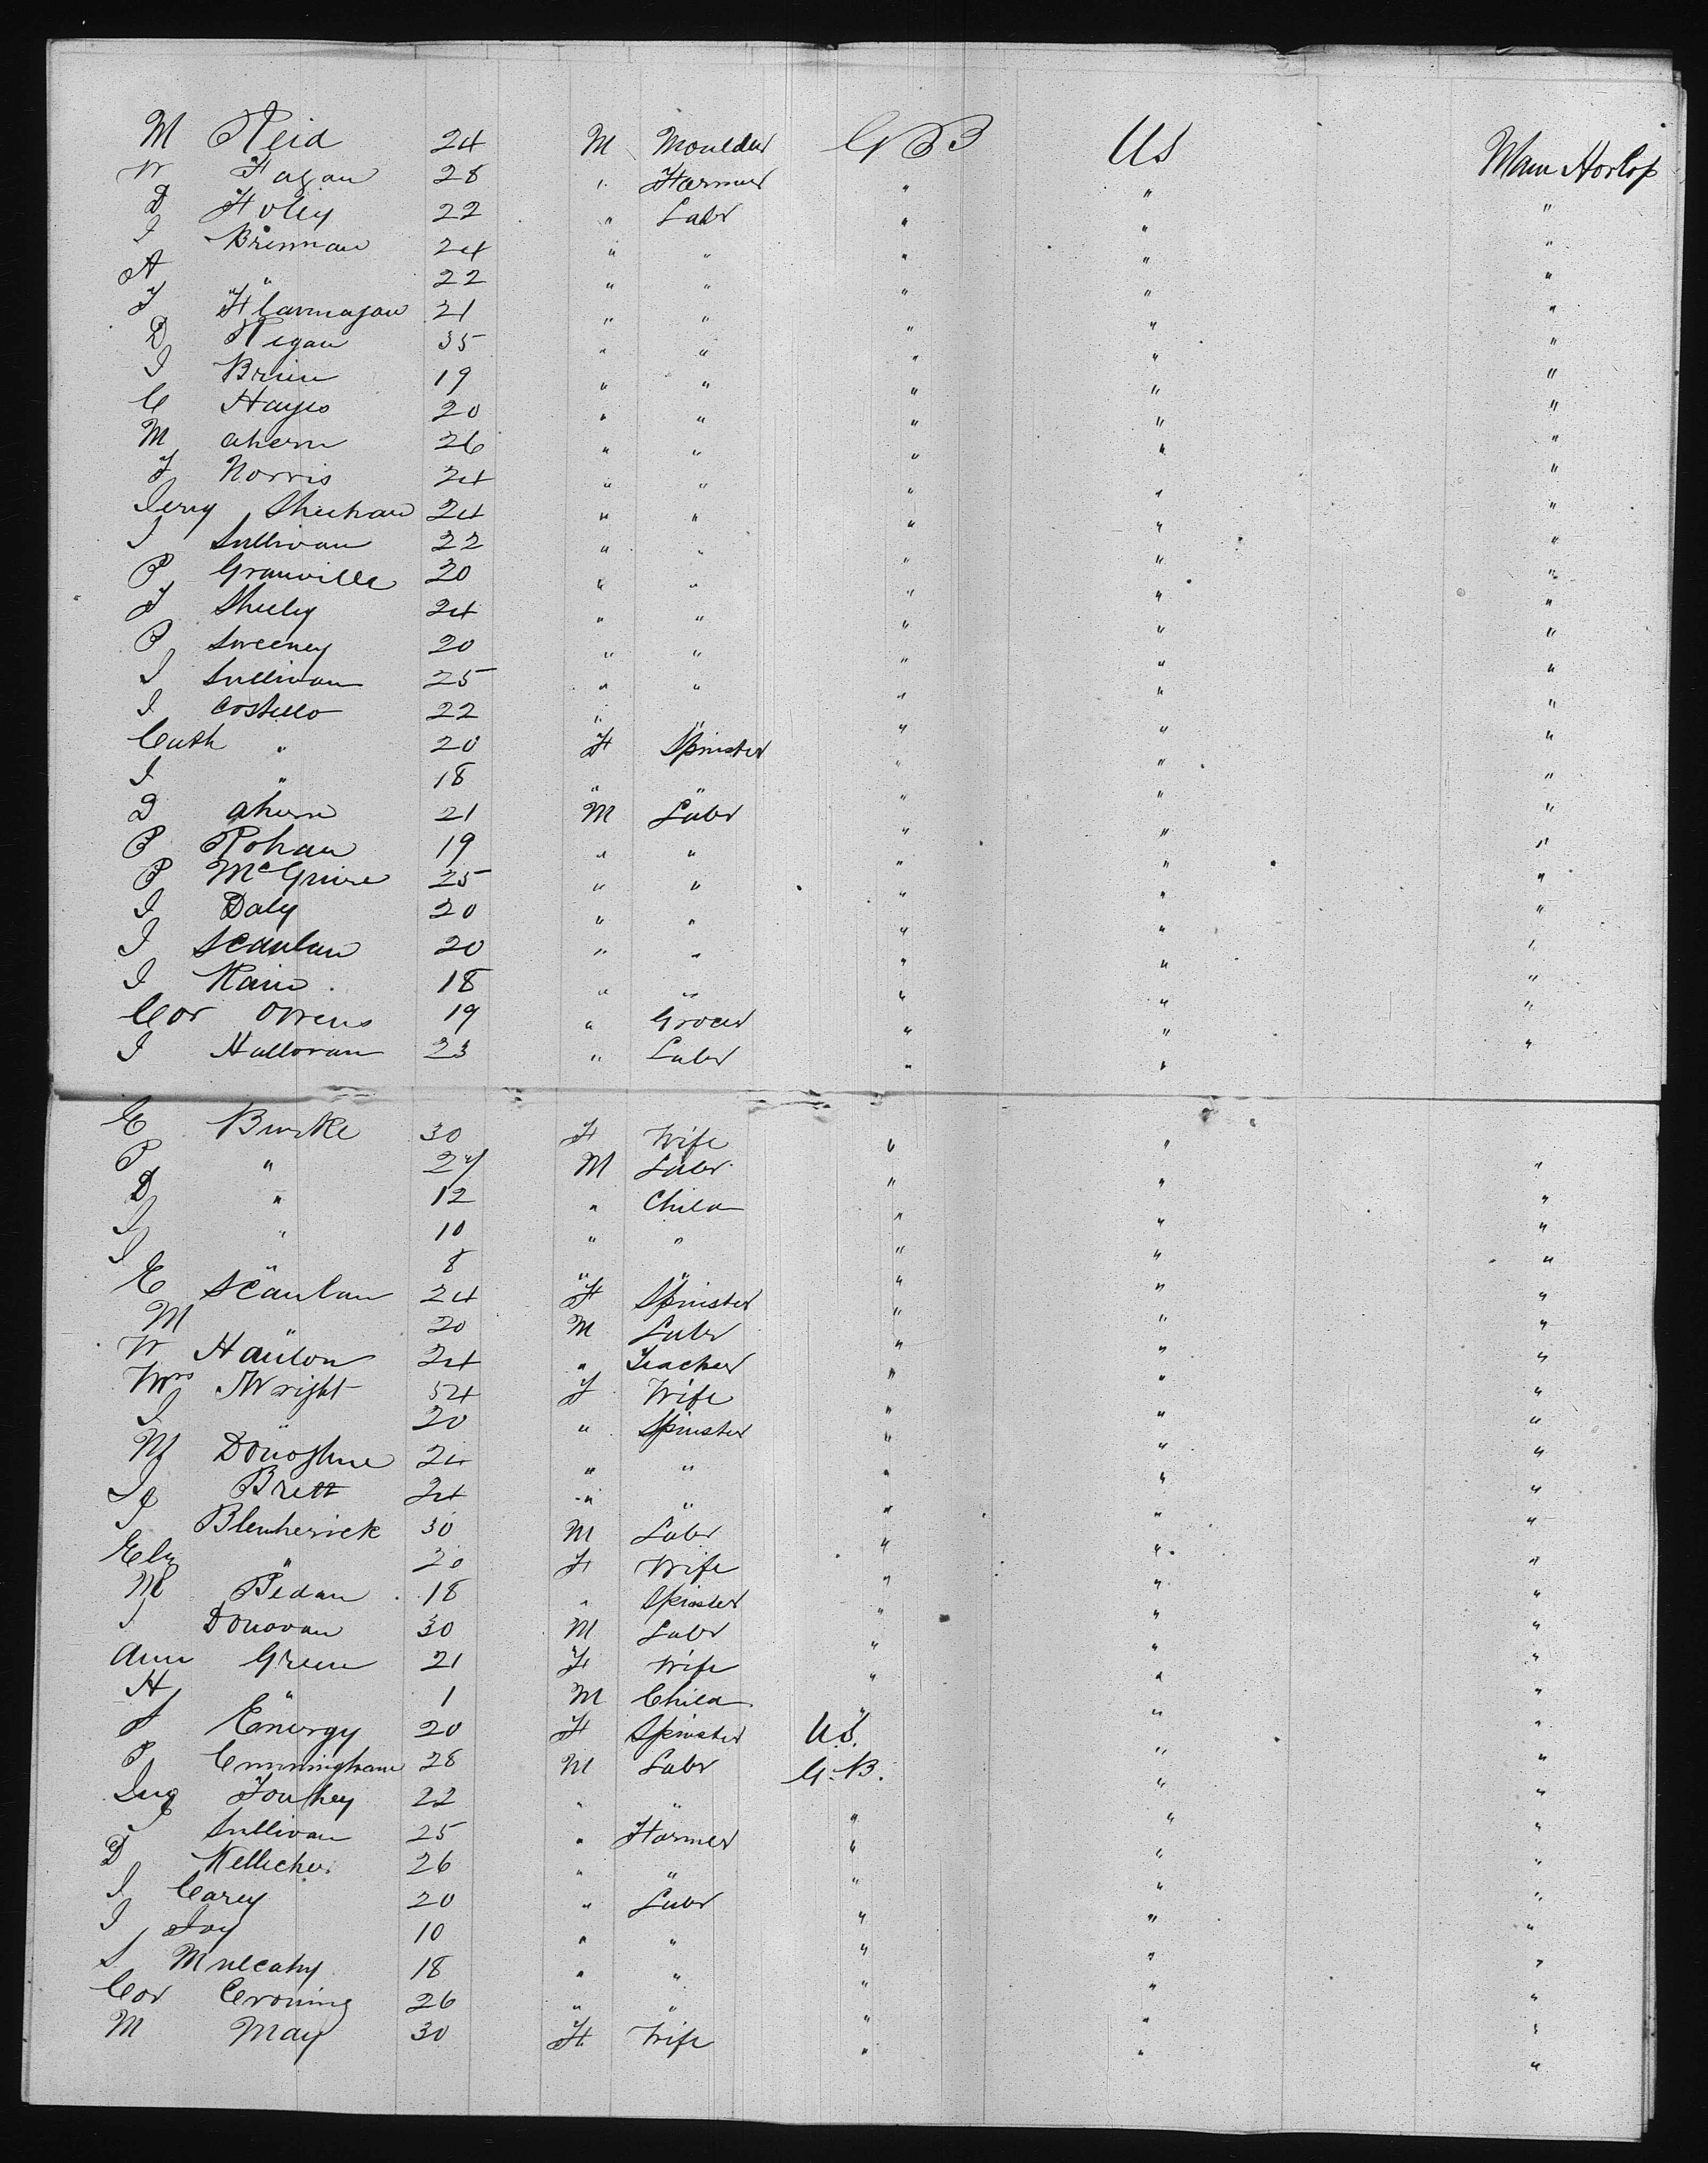 M Reid 24 M Moulder G B US Main Horlop
W Fagan 28 " Farmer " " "
D Foley 22 " Labr " " "
J Brennan 24 " " " " "
A " 22 " " " " "
J Flannagan 21 " " " " "
D Regan 35 " " " " "
J Brien 19 " " " " "
C Hayes 20 " " " " "
M Ahern 26 " " " " "
J Norris 24 " " " " "
Jerry Sheehan 24 " " " " "
J Sullivan 22 " " " " "
P Granville 20 " " " " "
J Sheehy 24 " " " " "
P Sweeney 20 " " " " "
J Sullivan 25 " " " " "
J Costello 22 " " " " "
Cath " 20 F Spinster " " "
J " 18 " " " " "
D Ahern 21 M Labr " " "
P Rohan 19 " " " " "
P McGuire 25 " " " " "
J Daly 20 " " " " "
J Scanlan 20 " " " " "
J Kain 18 " " " " "
Cor Owens 19 " Grocer " " "
J Halloran 23 " Labr " " "
E Burke 30 F Wife " " "
P " 24 M Labr " " "
D " 12 " Child " " "
J " 10 " " " " "
J " 8 " " " " "
E Scanlan 24 F Spinster " " "
M " 20 M Labr " " "
W Hanlon 24 " Teacher " " "
Mrs Wright 54 F Wife " " "
J " 20 " Spinster " " "
M Donoghue 24 " " " " "
Brett 24 " " " " "
J Blenherick 30 M Labr " " "
Elz " 20 F Wife " " "
M Pedan 18 " Spinster " " "
J Donovan 30 M Labr " " "
Ann Green 21 F Wife " " "
H " 1 M Child " " "
S Energy 20 F Spinster U.S. " "
P Cunningham 28 M Labr G.B. " "
Touhey 22 " " " " "
J Sullivan 25 " Farmer " " "
D Kelleher 26 " " " " "
J Carey 20 " Labr " " "
J Joy 10 " " " " "
S Mulcahy 18 " " " " "
Cor Croning 26 " " " " "
M May 30 F Wife " " "